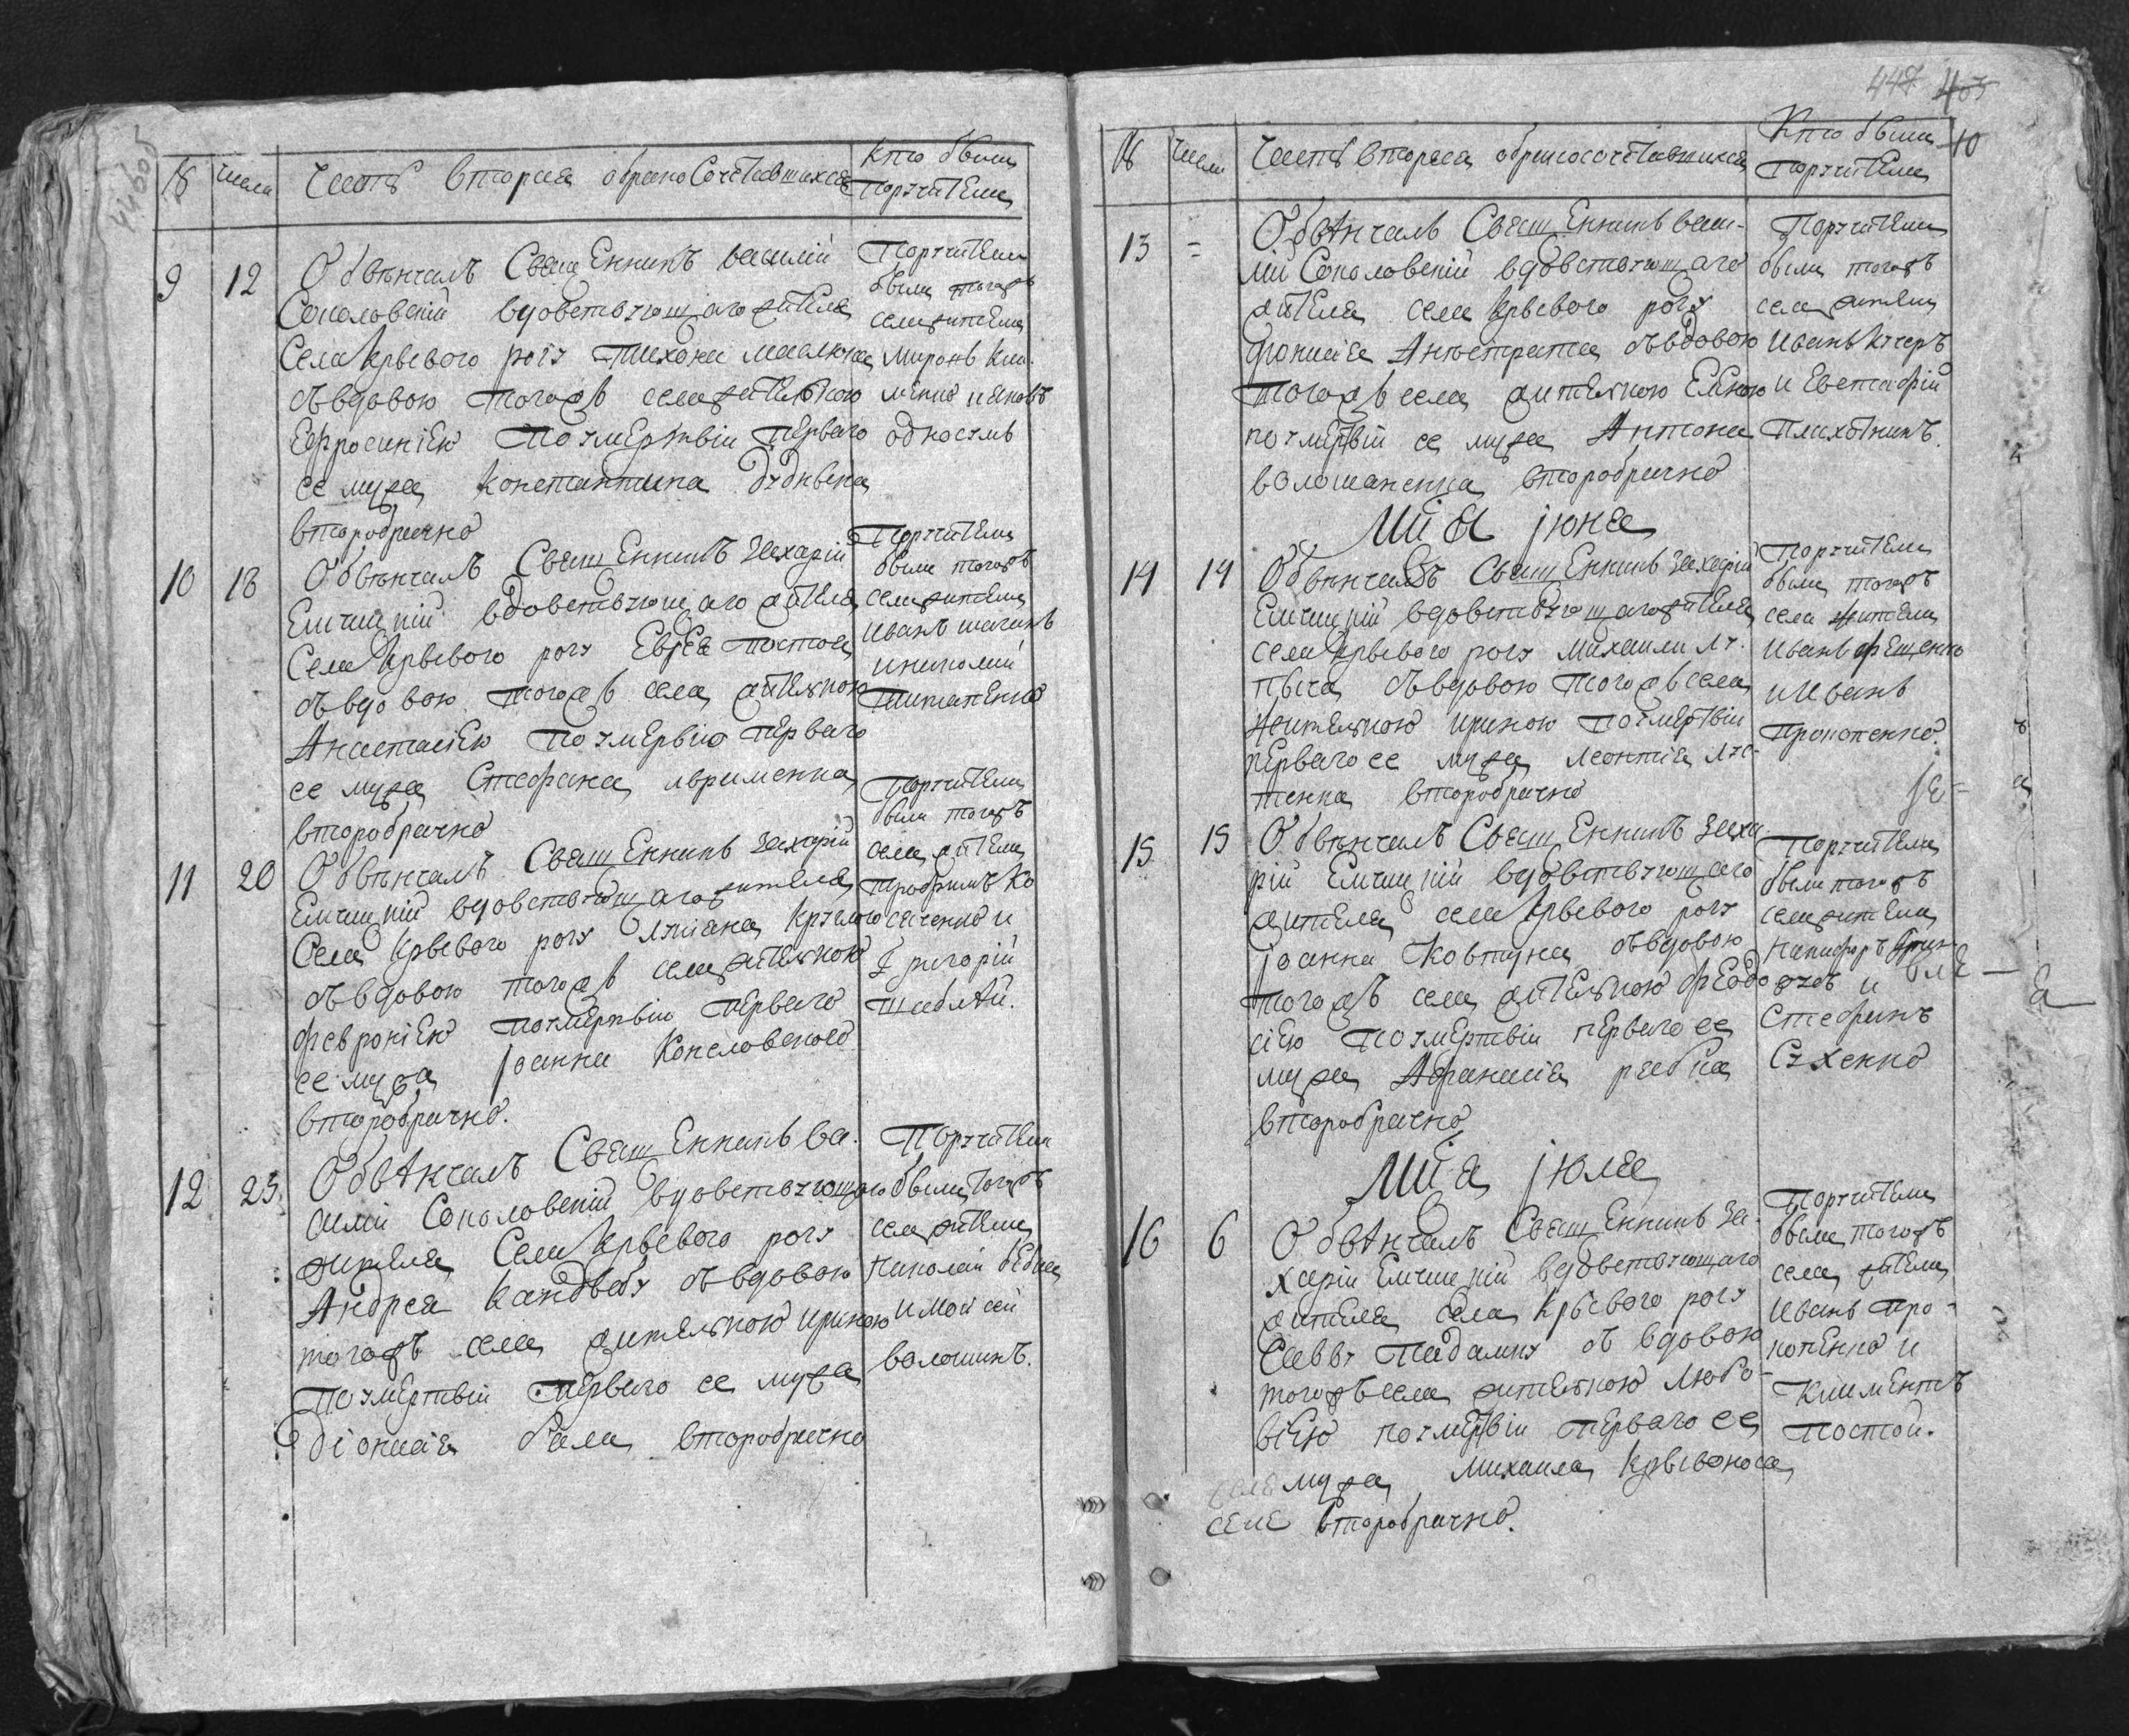 № числа Часть вторая о бракосочетавшихся Кто были
поручители
9 12 Обвѣнчалъ Священникъ василій
Соколовскій вдовствующаго жителя
Села Крывого рогу Тихона маслюка
съ вдовою того жъ села жителькою
Ефросиніею По умертвіи перваго
ее мужа Константина
второбрачно
Поручители
были того жъ
села жители
Миронъ Кли-
менко и яковъ
10 18 Обвѣнчалъ Священникъ Захарій
Елчицкій вдовствующаго жителя
Села Крывого рогу Евсея постола
съ вдовою того жъ села жителькою
Анастасіею по умертвію перваго
ее мужа Стефана авраменка
второбрачно
Поручители
были того жъ
села жители
Иванъ
и николай
Шитаненко
11 20 Обвѣнчалъ Священникъ Захарій
Елчицкій вдовствующаго жителя
Села Крывого рогу луkiана Круглого
съ вдовою того жъ села жителькою
февроніею по умертвію перваго
ее мужа Іоанна
второбрачно.
Поручители
были того жъ
села жители
трофимъ Ко
сяченко и
Григорій
шаблѣй.
12 25 Обвѣнчалъ Священникъ Ва-
силій Соколовскій вдовствующаго
жителя Села Крывого рогу
Андрея Кандыбу съ вдовою
того жъ села жителькою ириною
по умертвій перваго ее мужа
діонисія второбрачно
Поручители
были того жъ
села жители
Николай
и Мойсей
волошинъ.
447 403
10
№ числа Часть вторая о бракосочетавшихся Кто были
поручители
13 = Обвѣнчалъ Священникъ васи-
лій Соколовскій вдовствующаго
жителя села Крывого рогу
съ вдовою
того жъ села жителькою Еленою
по умертвій ее мужа Антона
волошаненка второбрачно
Поручители
были того жъ
села жители
Иванъ Кучеръ
и Евстафій
Плахотникъ.
Мца іюня
14 14 Обвѣнчалъ Священникъ Захарій
Елчицкій вдовствующаго жителя
села Крывого рогу михаила лу-
пыча съ вдовою того жъ села
жителькою ириною по умертвіи
перваго ее мужа леонтія
второбрачно
Поручители
были того жъ
села жители
Иванъ фещенко
и Иванъ
Прокопенко.
15 15 Обвѣнчалъ Священникъ Заха-
рій Елчицкій вдовствующаго
жителя села Крывого рогу
Іоанна Ковтуна съ вдовою
того жъ села жителькою феодо
сіею по умертвіи перваго ее
мужа Афанасія рябка
второбрачно
Поручители
были того жъ
села жители
Никифоръ
и
Стефанъ
Сухенко
Мца іюля
16 6 Обвѣнчалъ Священникъ За-
харій Елчицкій вдовствующаго
жителя села Крывого рогу
Савву Падалку съ вдовою
того жъ села жителькою Любо-
вію по умертвіи перваго ее
мужа Михаила Крывоноса
второбрачно.
Поручители
были того жъ
села жители
Иванъ Про-
копенко и
Климентъ
постол.